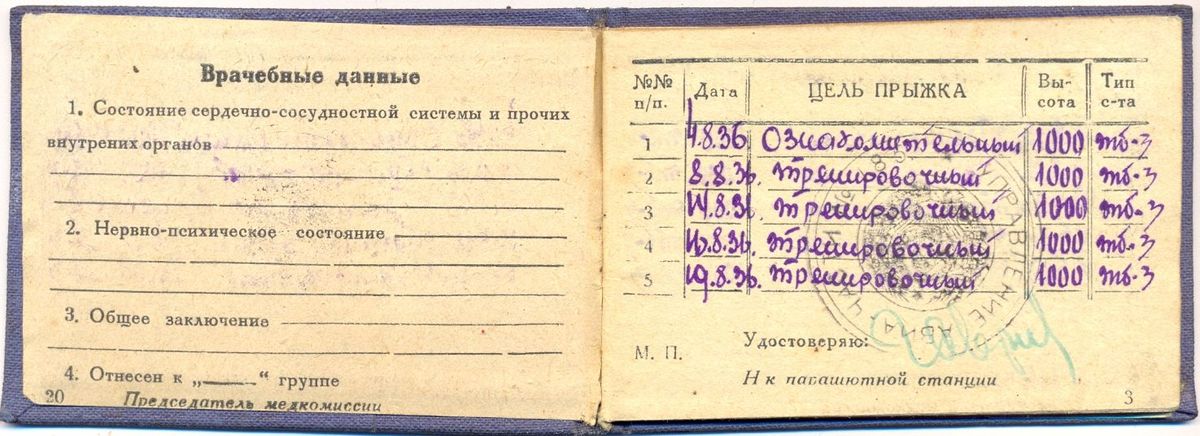 Врачебные данные
1. Состояние сердечно-сосудностной системы и прочих
внутрених органов
2. Нервно-психическое состояние
3. Общее заключение
4. Отнесен к „ “ группе
20
Председатель медкомиссии
№№ п/п. Дата ЦЕЛЬ ПРЫЖКА Вы-сота Тип с-та
1 4.8.36 Ознакомительный 1000 тб-3
2 8.8.36. тренировочный 1000 тб-3
3 14.8.36. тренировочный 1000 тб-3
4 16.8.36. тренировочный 1000 тб-3
5 19.8.36. тренировочный 1000 тб-3
УПРАВЛЕНИЕ
М. П. Удостоверяю:
Н к парашютной станции
3